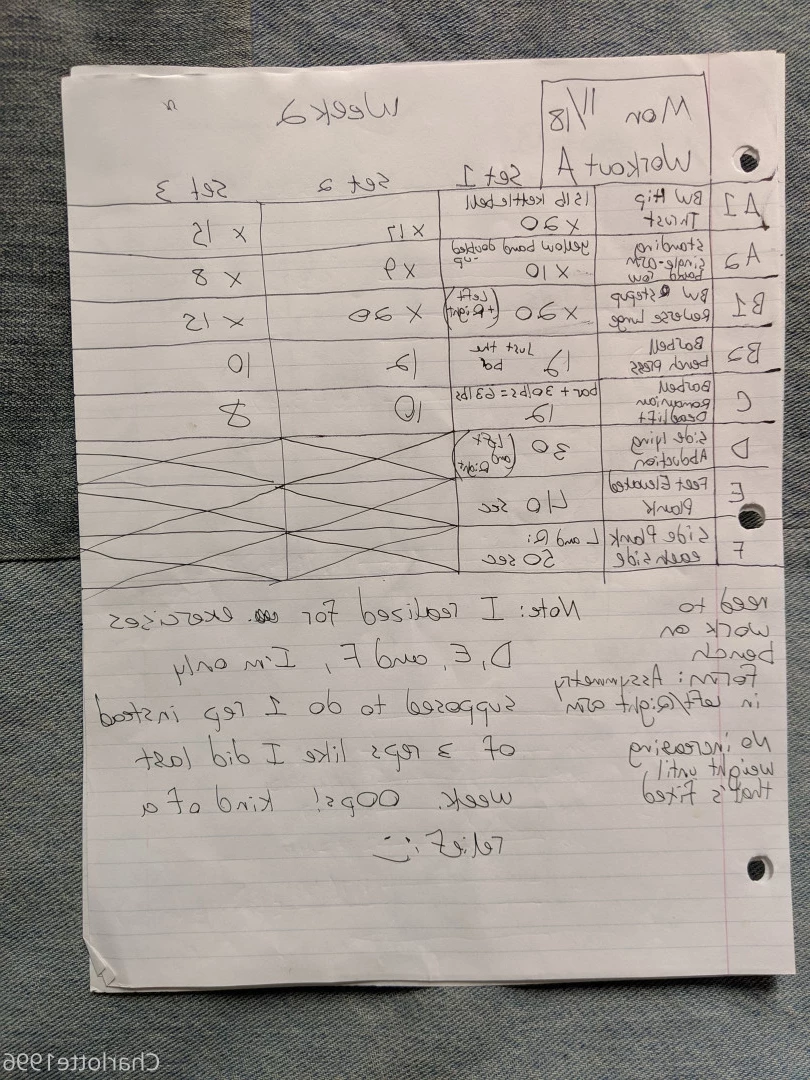 Mon 11/18
Workout A
Week 2
Set 1 Set 2 Set 3
A1 BW Hip Thrust 15 lb kettlebell x 20 x 17 x 15
A2 Standing single-arm band row yellow band doubled -up x 10 x 9 x 8
B1 BW stepup Reverse lunge x 20 (Left + Right) x 20 x 15
B2 Barbell bench press 12 Just the 12 10
C Barbell Romanian Deadlift bar + 30lbs = 63 lbs 12 10 8
D Side lying Abduction 30 (Left and Right)
E Feet Elevated Plank 40 sec
F Side Plank each side L and R: 50 sec
need to
work on
bench
form: Assymmetry
in left/Right arm
No increasing
weight until
that's fixed
Note: I realized for exercises
D, E, and F, I'm only
supposed to do 1 rep instead
of 3 reps like I did last
week. OOPS! Kind of a
relief :)
Charlotte1996